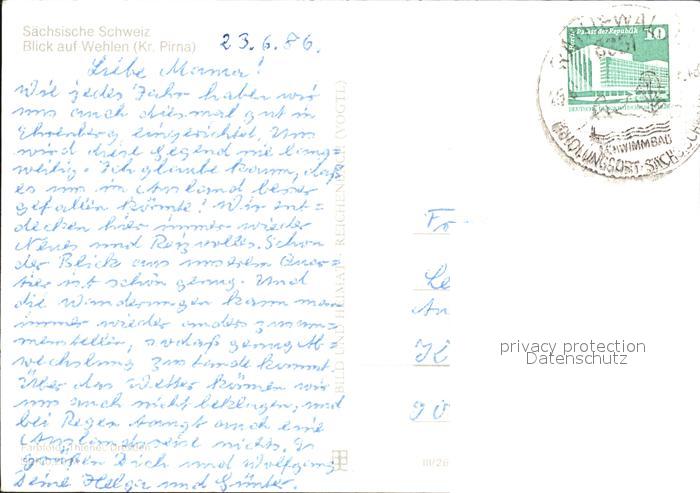 Sächsische Schweiz
Blick auf Wehlen (Kr. Pirna)
23.6.86.
Liebe Mama!
Wie jedes Jahr haben wir
uns auch diesmal gut in
Ehrenberg eingerichtet. Uns
wird diese Gegend nie lang=
weilig. Ich glaube kaum, daß
es uns im Ausland besser
gefallen könnte! Wir ent=
decken hier immer wieder
Neues und Reizvolles. Schon
der Blick aus unserem Quar=
tier ist schön genug. Und
die Wanderungen kann man
immer wieder anders zusam=
menstellen, sodaß genug Ab=
wechslung zustande kommt.
Über das Wetter können wir
uns auch nicht beklagen, und
bei Regen taugt auch eine
Auslandsreise nichts. Es
grüßen Dich und Wolfgang
Deine Helga und Günter.
Farbfoto: Thienel, Dresden
BILD UND HEIMAT REICHENBACH (VOGTL)
III/26
Palast der Republik
10
SCHWIMMBAD
ERHOLUNGSORT
Fr
Le
An
privacy protection
Datenschutz